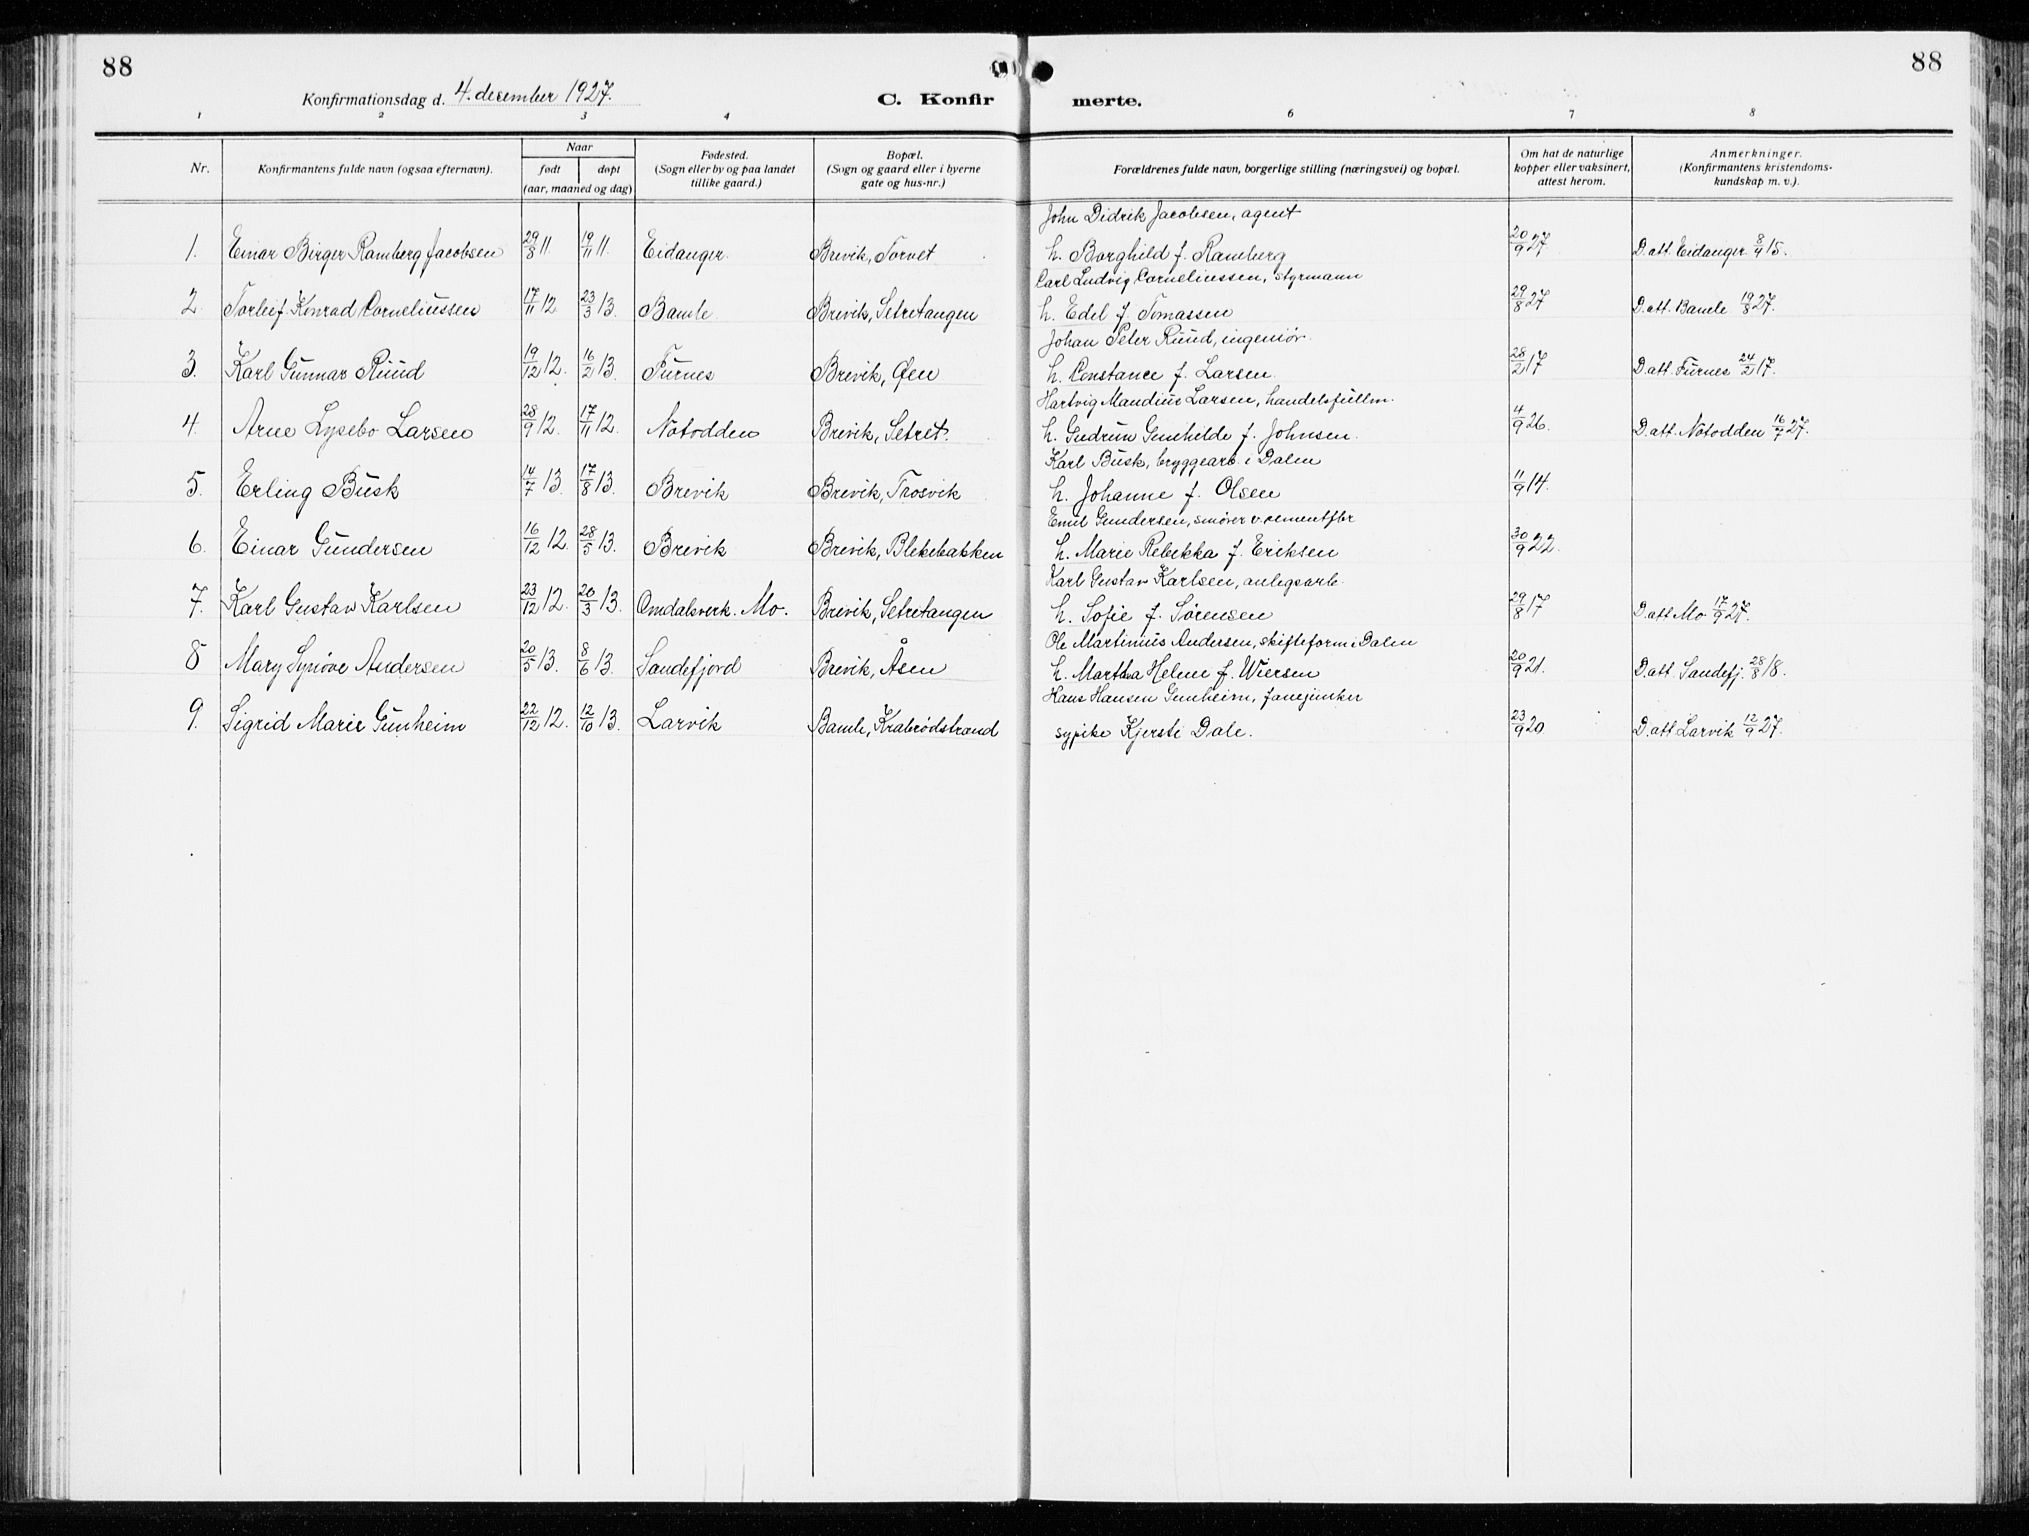 88
88
Konfirmationsdag d. 4. desember 1927.
C. Konfirmerte.
1 2 3 4 6 7 8
Nr.
Konfirmantens fulde navn (ogsaa efternavn).
Naar
født døpt
(aar, maaned og dag)
Fødested.
(Sogn eller by og paa landet
tillike gaard.)
Bopæl.
(Sogn og gaard eller i byerne
gate og hus-nr.)
Forældrenes fulde navn, borgerlige stilling (næringsvei) og bopæl.
Om hat de naturlige
kopper eller vaksinert,
attest herom.
Anmerkninger.
(Konfirmantens kristendoms-
kundskap m. v.).
John Didrik Jacobsen, agent
1. Einar Birger Ramberg Jacobsen 29/8 11. 19/11 11. Eidanger. Brevik, Torvet h. Borghild f. Ramberg 20/9 27 D. att. Eidanger 8/4 15.
Carl Ludvig Corneliussen, styrmann
2. Torleif Konrad Corneliussen 17/11 12 23/3 13. Bamle Brevik, Setretangen h. Edel f. Tomassen 29/8 27 D. att. Bamle 19/8 27.
Johan Peter Ruud, ingeniør.
3. Karl Gunnar Ruud 19/12 12. 16/2 13. Furnes Brevik, Øen h. Constance f. Larsen. 28/2 17 D. att. Furnes 24/2 17.
Hartvig Maudius Larsen, handelsfullm.
4. Arne Lysebo Larsen 28/9 12. 17/11 12. Notodden Brevik, Setret. h. Gudrun Gunhilde f. Johnsen. 4/9 26. D. att. Notodden 16/7 27.
Karl Busk, bryggearb. i Dalen
5. Erling Busk 14/7 13. 17/8 13. Brevik Brevik, Trosvik h. Johanne f. Olsen 11/9 14.
Emil Gundersen, smører v. cementfbr
6. Einar Gundersen 16/12 12. 28/5 13. Brevik Brevik, Blekebakken h. Marie Rebekka f. Eriksen 30/9 22.
Karl Gustav Karlsen, anlegsarb.
7. Karl Gustav Karlsen 23/12 12. 20/3 13. Omdalsverk. Mo. Brevik, Setretangen h. Sofie f. Sørensen 29/8 17 D. att Mo 17/9 27.
Ole Martinius Andersen, skifteform i Dalen
8 Mary Synøve Andersen 20/5 13. 8/6 13. Sandefjord Brevik, Åsen h. Martha Helene f. Wiersen 20/9 21. D. att. Sandefj. 28/8 18.
Hans Hansen Gunheim, fanejunker
9. Sigrid Marie Gunheim 22/12 12. 12/10 13. Larvik Bamle, Krabrødstrand sypike Kjersti Dale. 23/9 20 D. att Larvik 12/9 27.